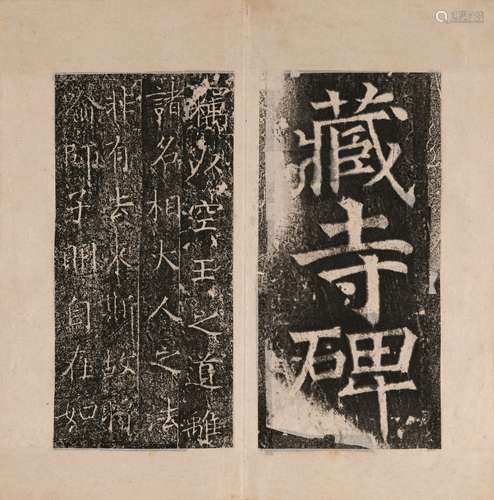 藏寺碑
竊以空王之道離
諸名相大人之法
非有去來斯故將
喻師子明自在如